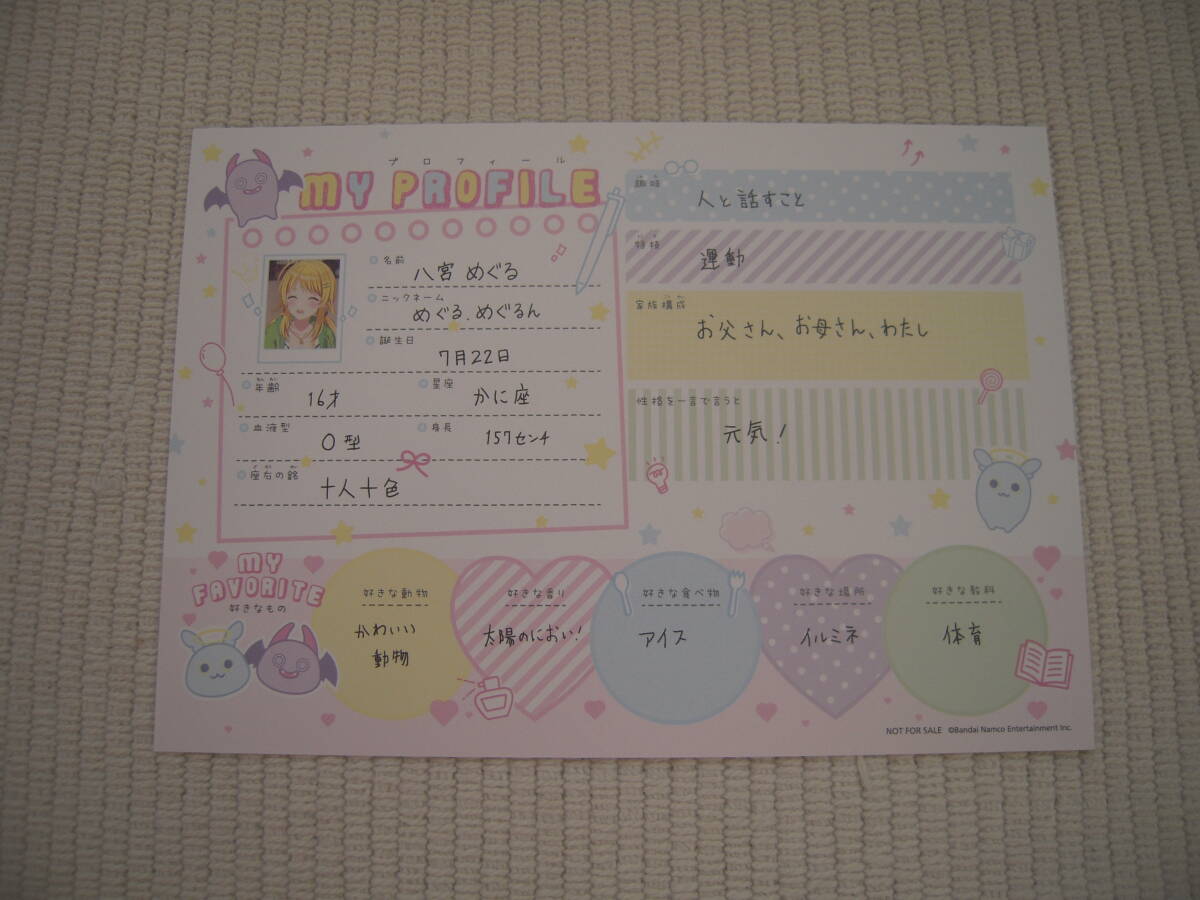 プロフィール
MY PROFILE
名前
八宮 めぐる
ニックネーム
めぐる、めぐるん
誕生日
7月22日
年齢
16才
星座
かに座
血液型
O型
身長
157センチ
座右の銘
十人十色
趣味
人と話すこと
特技
運動
家族構成
お父さん、お母さん、わたし
性格を一言で言うと
元気!
MY
FAVORITE
好きなもの
好きな動物
かわいい
動物
好きな香り
太陽のにおい!
好きな食べ物
アイス
好きな場所
イルミネ
好きな教科
体育
NOT FOR SALE ©Bandai Namco Entertainment Inc.